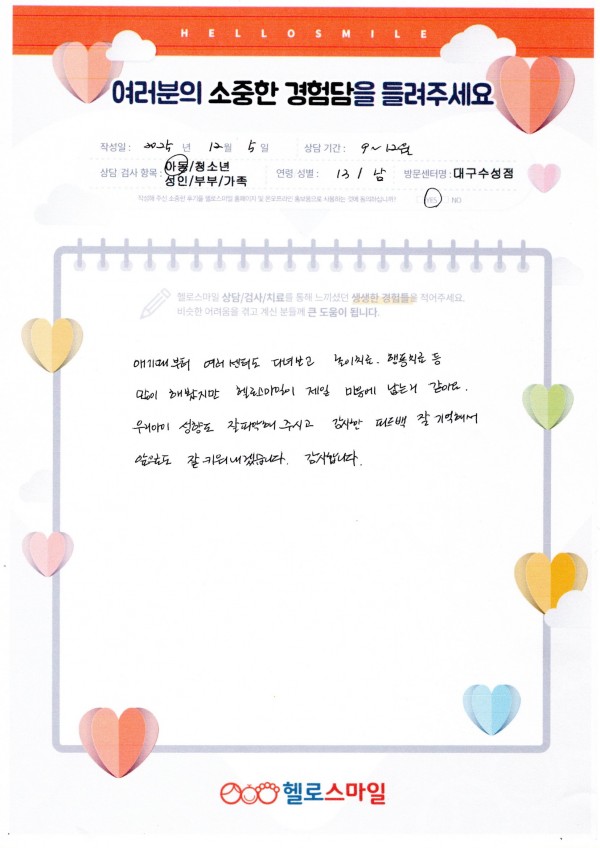 HELLOSMILE
여러분의 소중한 경험담을 들려주세요
작성일 : 2025 년 12월 5일 상담 기간 : 9~12월
상담 검사 항목 : 아동/청소년 성인/부부/가족 연령 성별 : 13 / 남 방문센터명 : 대구수성점
작성해 주신 소중한 후기를 헬로스마일 홈페이지 및 온오프라인 홍보용으로 사용하는 것에 동의하십니까? YES NO
헬로스마일 상담/검사/치료를 통해 느끼셨던 생생한 경험들을 적어주세요.
비슷한 어려움을 겪고 계신 분들께 큰 도움이 됩니다.
애기때부터 여러 센터도 다녀보고 놀이치료. 행동치료 등
많이 해봤지만 헬로스마일이 제일 마음에 남는거 같아요.
우리아이 성향도 잘파악해 주시고 감사한 피드백 잘 기억해서
앞으로도 잘 키워내겠습니다. 감사합니다.
헬로스마일